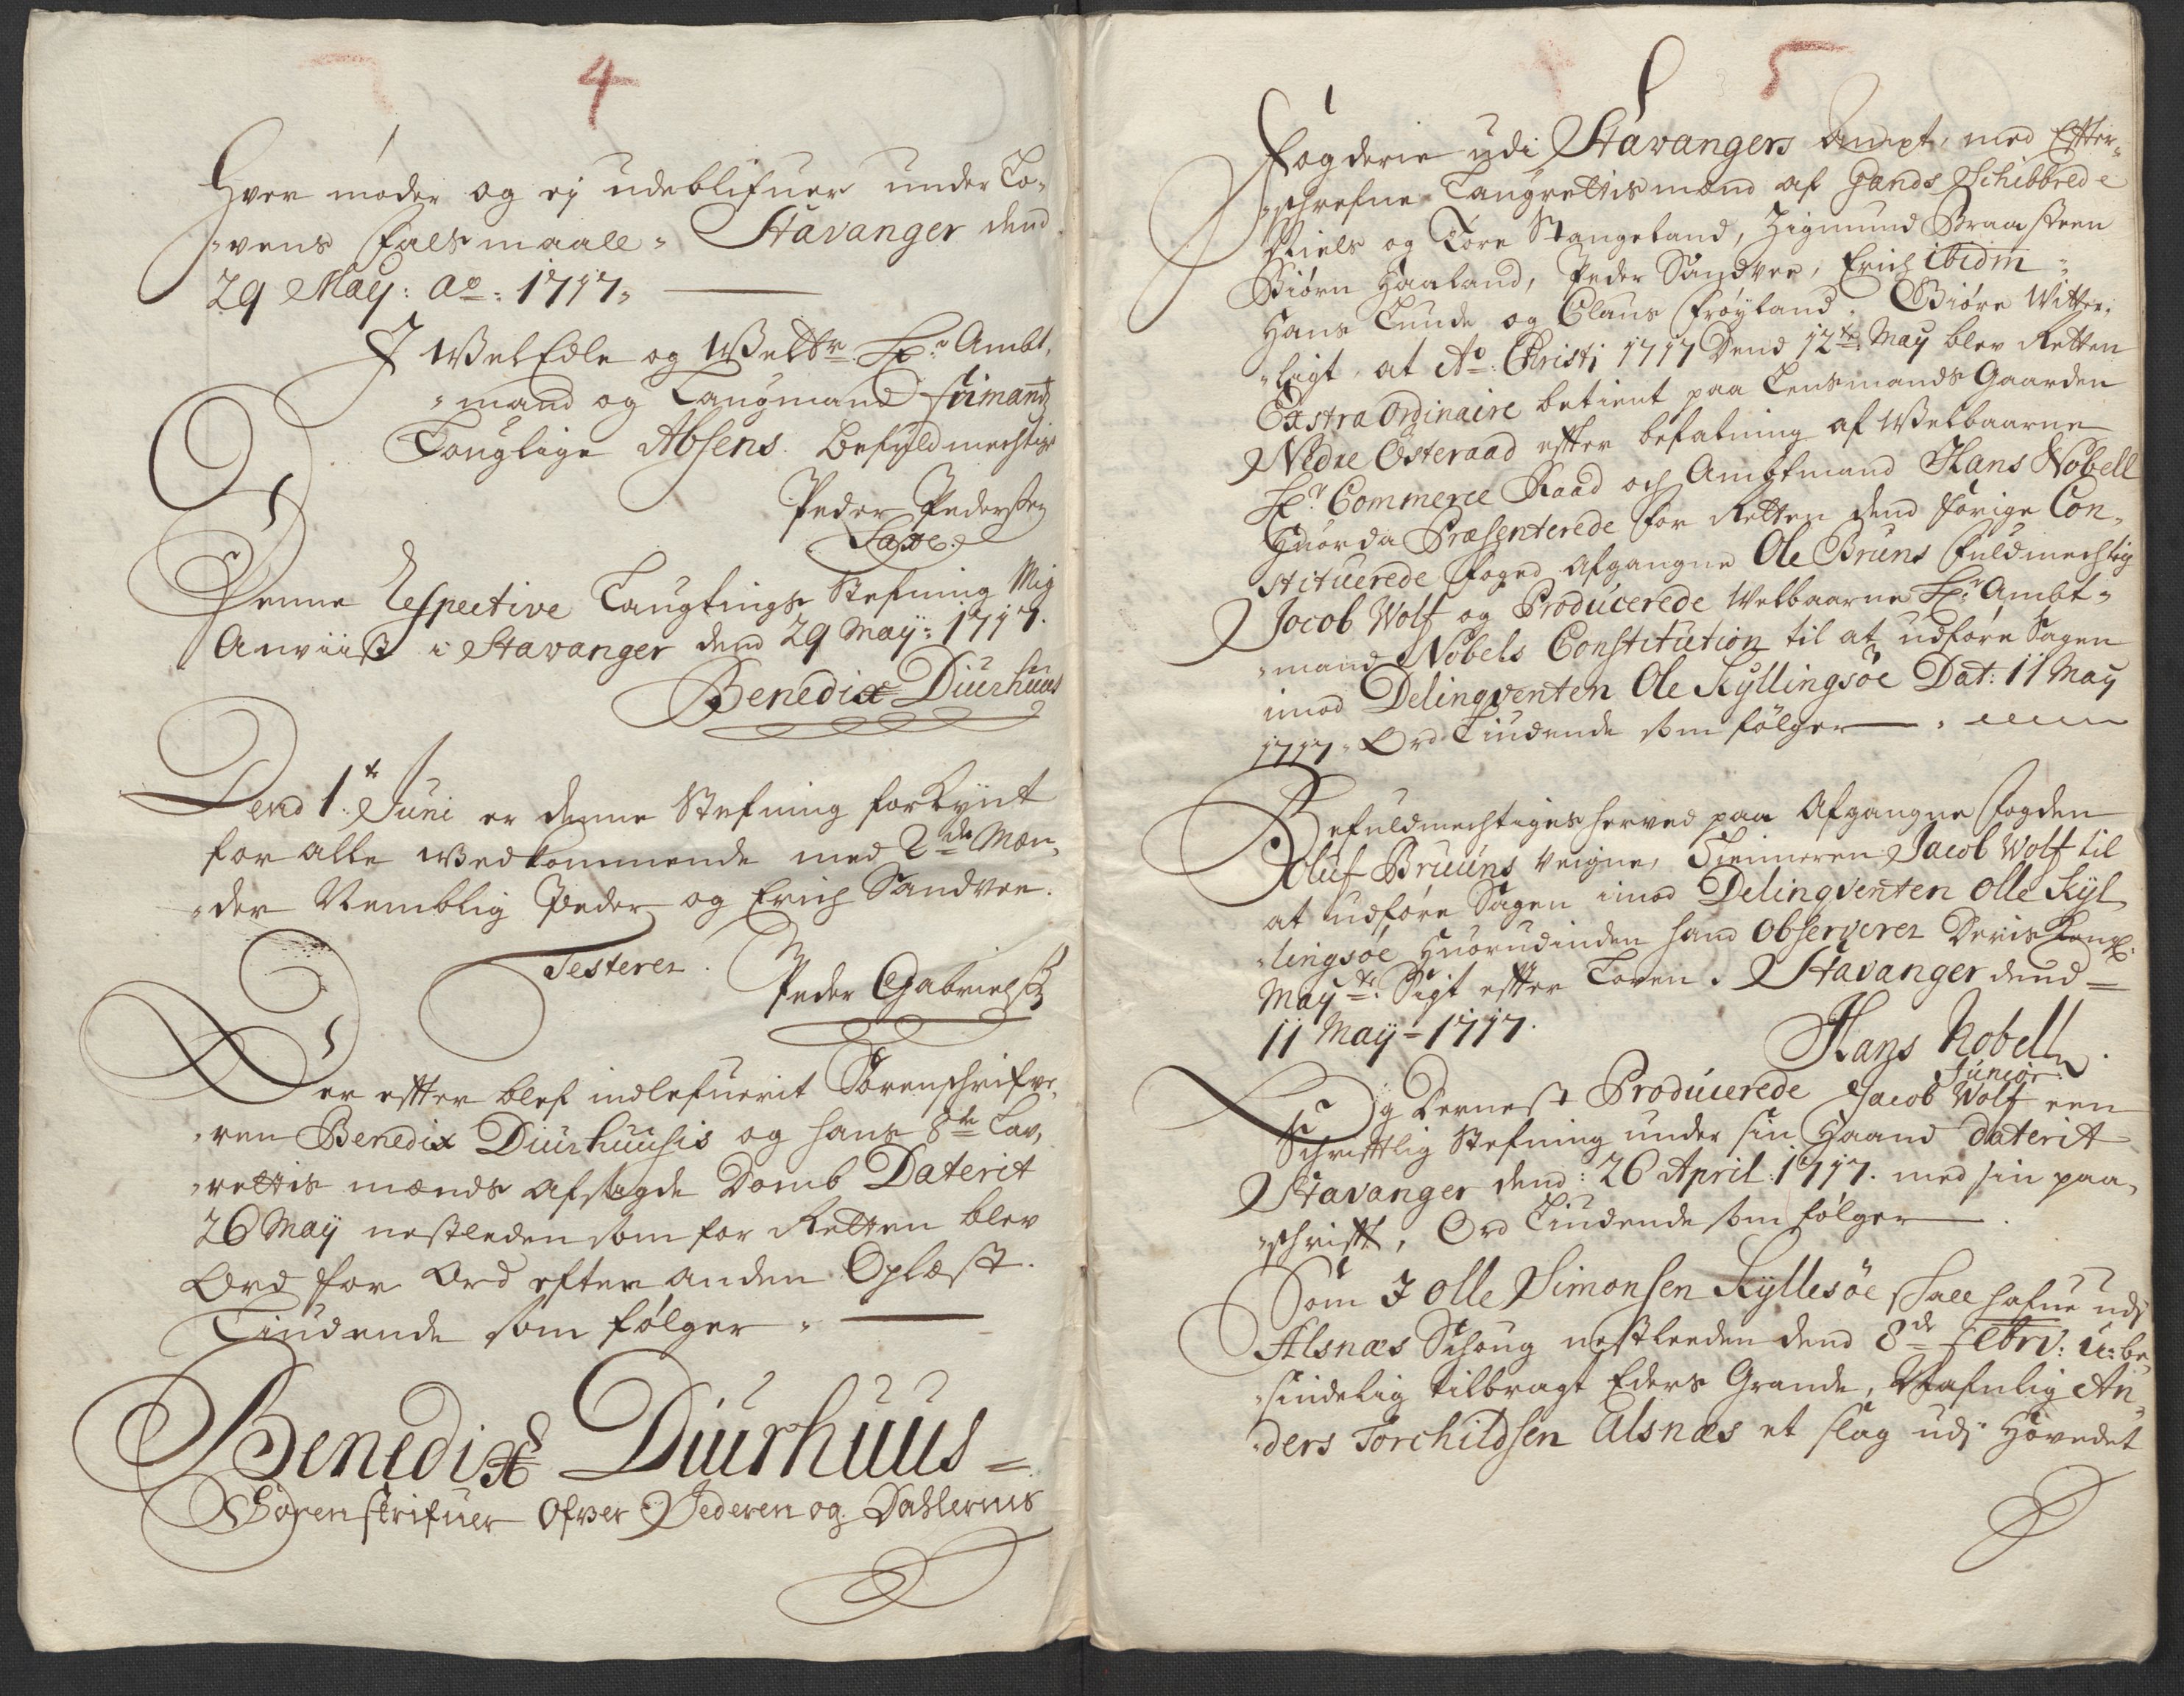 4
Hver møder og ej udeblifuer under Lo„
„vens falsmaall„ Stavanger dend
29 May: ao: 1717„
I WelEdle og Welbr. Hr. Ambt„
„mand og Laugmand
Louglige Absens. befuldmechtiget
Peder Pedersen
Denne Respective Laugtings Stefning Mig
Anviist i Stavanger dend 29 May: 1717.
Benedix Diurhuus
Dend 1te Juni er denne Stefning forkynt
for alle Vedkommende med 2de Mæn„
„der Nemblig Peder og Erich Sandvee.
Testerer.
Peder Gabrielsen
Der effter blef indlefuerit Sorenschrifve„
„ren Benedix Diurhuusis og hans 8te Lav„
„rettis mænds afsagde Domb Daterit
26 May nestleden som for Retten blev
Ord for Ord efter anden Oplæst.
Liudende som følger„
Benedix Diurhuus
Sorenskrifuer Ofver Jederen og Dahlernes
5
Fogderie udi Stavangers Ampt, med Effter„
„schrefne Laugrettismænd af Gands Schibbrede
Niels og Tore Stangeland, Zigmund Braasteen
Biørn Haaland, Peder Sandvee, Erich ibidm„
Hans Lunde og Claus Frøyland. Giøre Vitter„
„ligt at Ao: Christi 1717 Dend 12te May blev Retten
Extra Ordinaire betient paa Lensmands Gaarden
Nedre Østeraad effter befalning af Welbaarne
Hr. Commerce Raad och Ambtmand Hans Nobell
Huorda Præsenterede for Retten dend forige Con„
stituerede foged afgangne Ole Bruns fuldmechtig
Jocob Wolf og Producerede Welbaarne Hr. Ambt„
„mand Nobels Constitution til at udføre Sagen
imod Delinqventen Ole Kyllingsøe Dat: 11 May
1717„ Ord Liudende som følger
Befuldmechtiges herved paa Afgangne fogden
Oluf Bruuns veigne, Tienneren Jacob Wolf til
at udføre Sagen imod Delinqventen Olle Kyl
„lingsøe, Huorudinden hand Observerer Deris Kongl:
Mayts: Rigt effter Loven. Stavanger dend
11 May 1717.
Hans Nobell
Junior
Og Dernest Producerede Jacob Wolf een
Schrifftlig Stefning under sin Haand daterit
Stavanger dend: 26 April: 1717. med sin paa„
„schrifft, Ord Liudende som følger
Som I Olle Simonsen Kyllesøe skall hafue udj
Alsnæs Schoug nestleeden dend 8de Febrv: u-be„
„sindelig tilbragt Eders Grande, Nafnlig An„
„ders Torchildsen Alsnæs et slag udj Hovedet